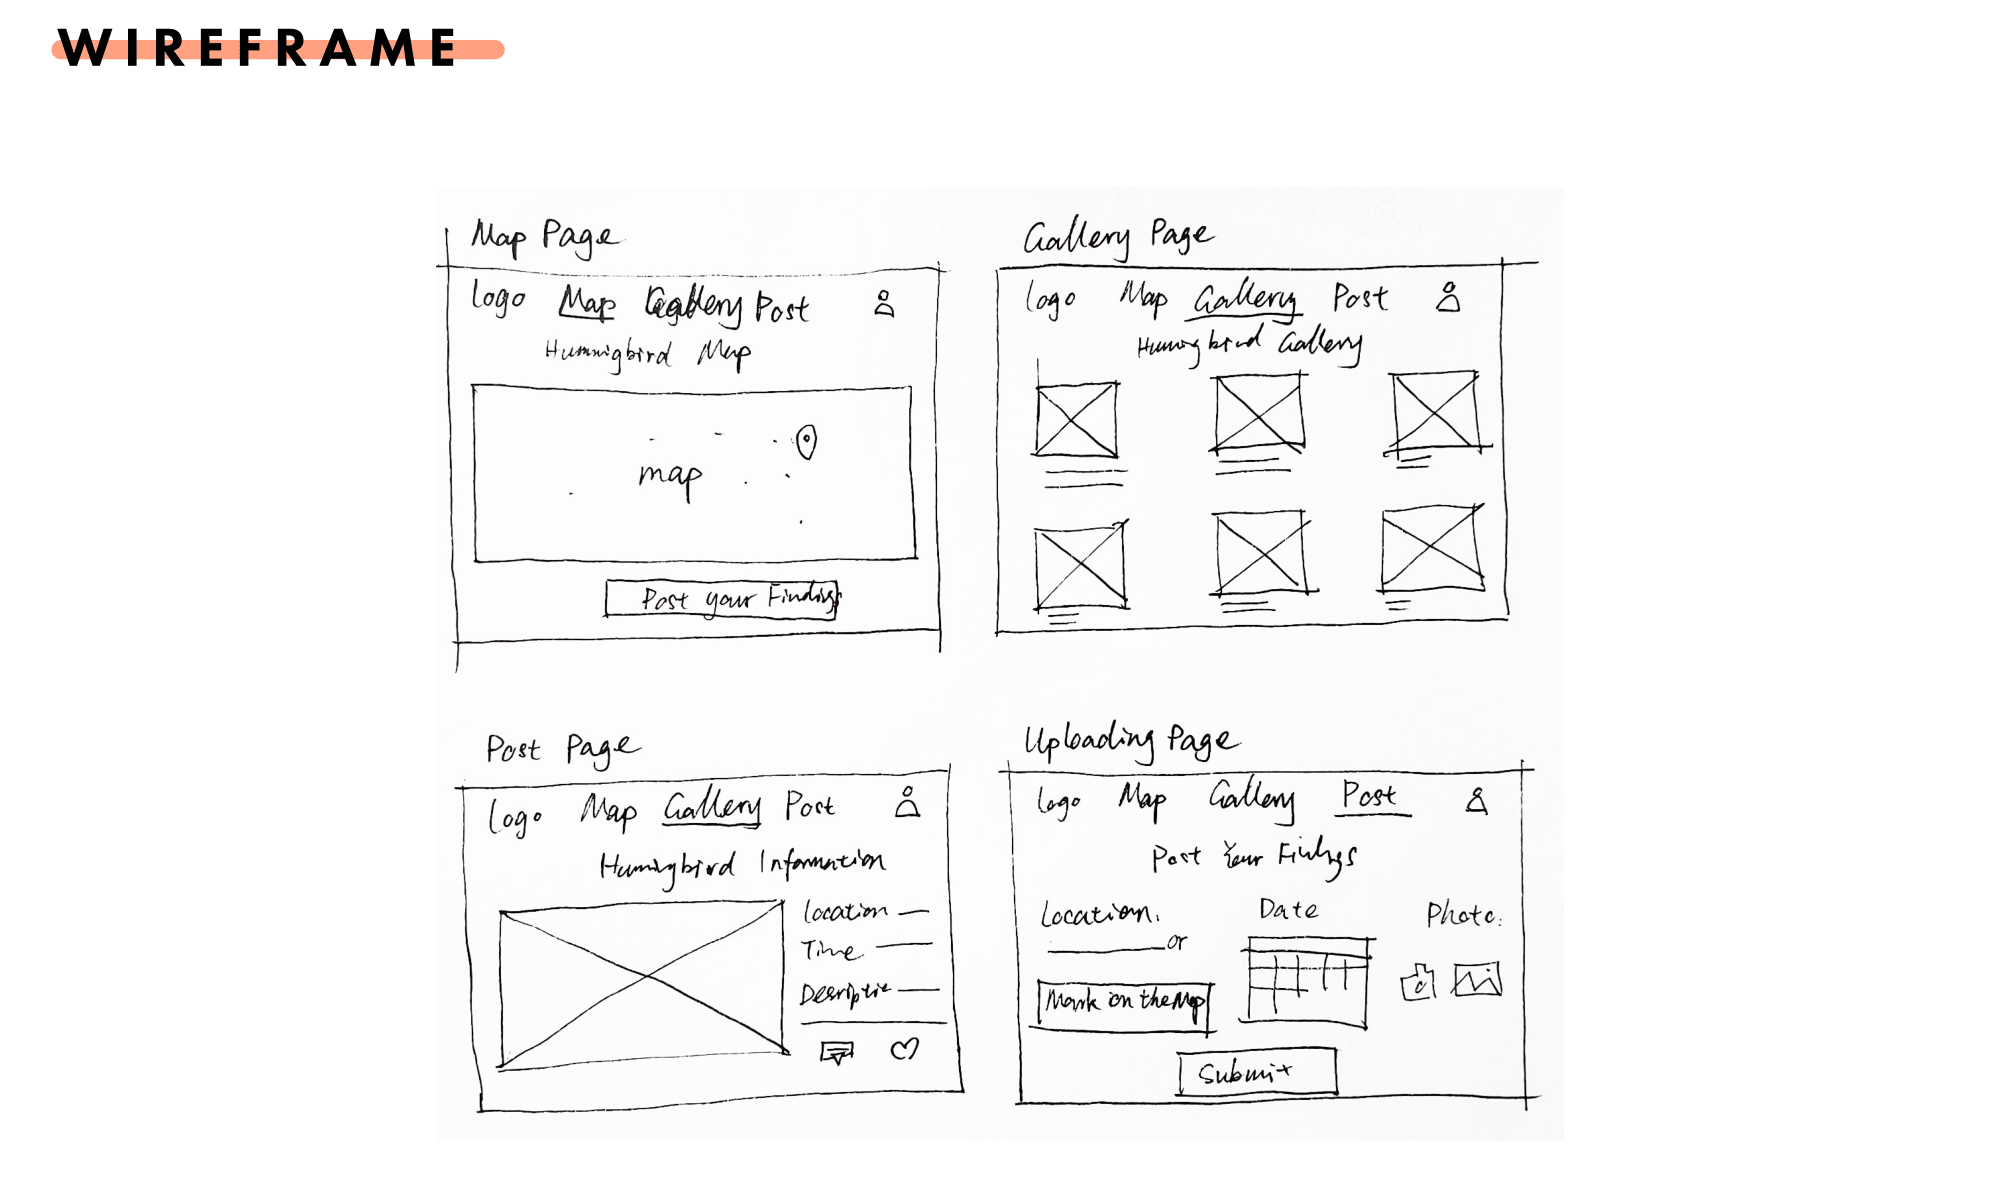 WIREFRAME
Map Page
Logo Map Gallery Post
Hummigbird Map
map
Post your Findings
Gallery Page
Logo Map Gallery Post
Humingbird Gallery
Post Page
Logo Map Gallery Post
Humingbird Information
Location
Time
Descriptio
Uploading Page
Logo Map Gallery Post
Post Your Findings
Location:
or
Mark on the Map
Date
Photo:
Submit